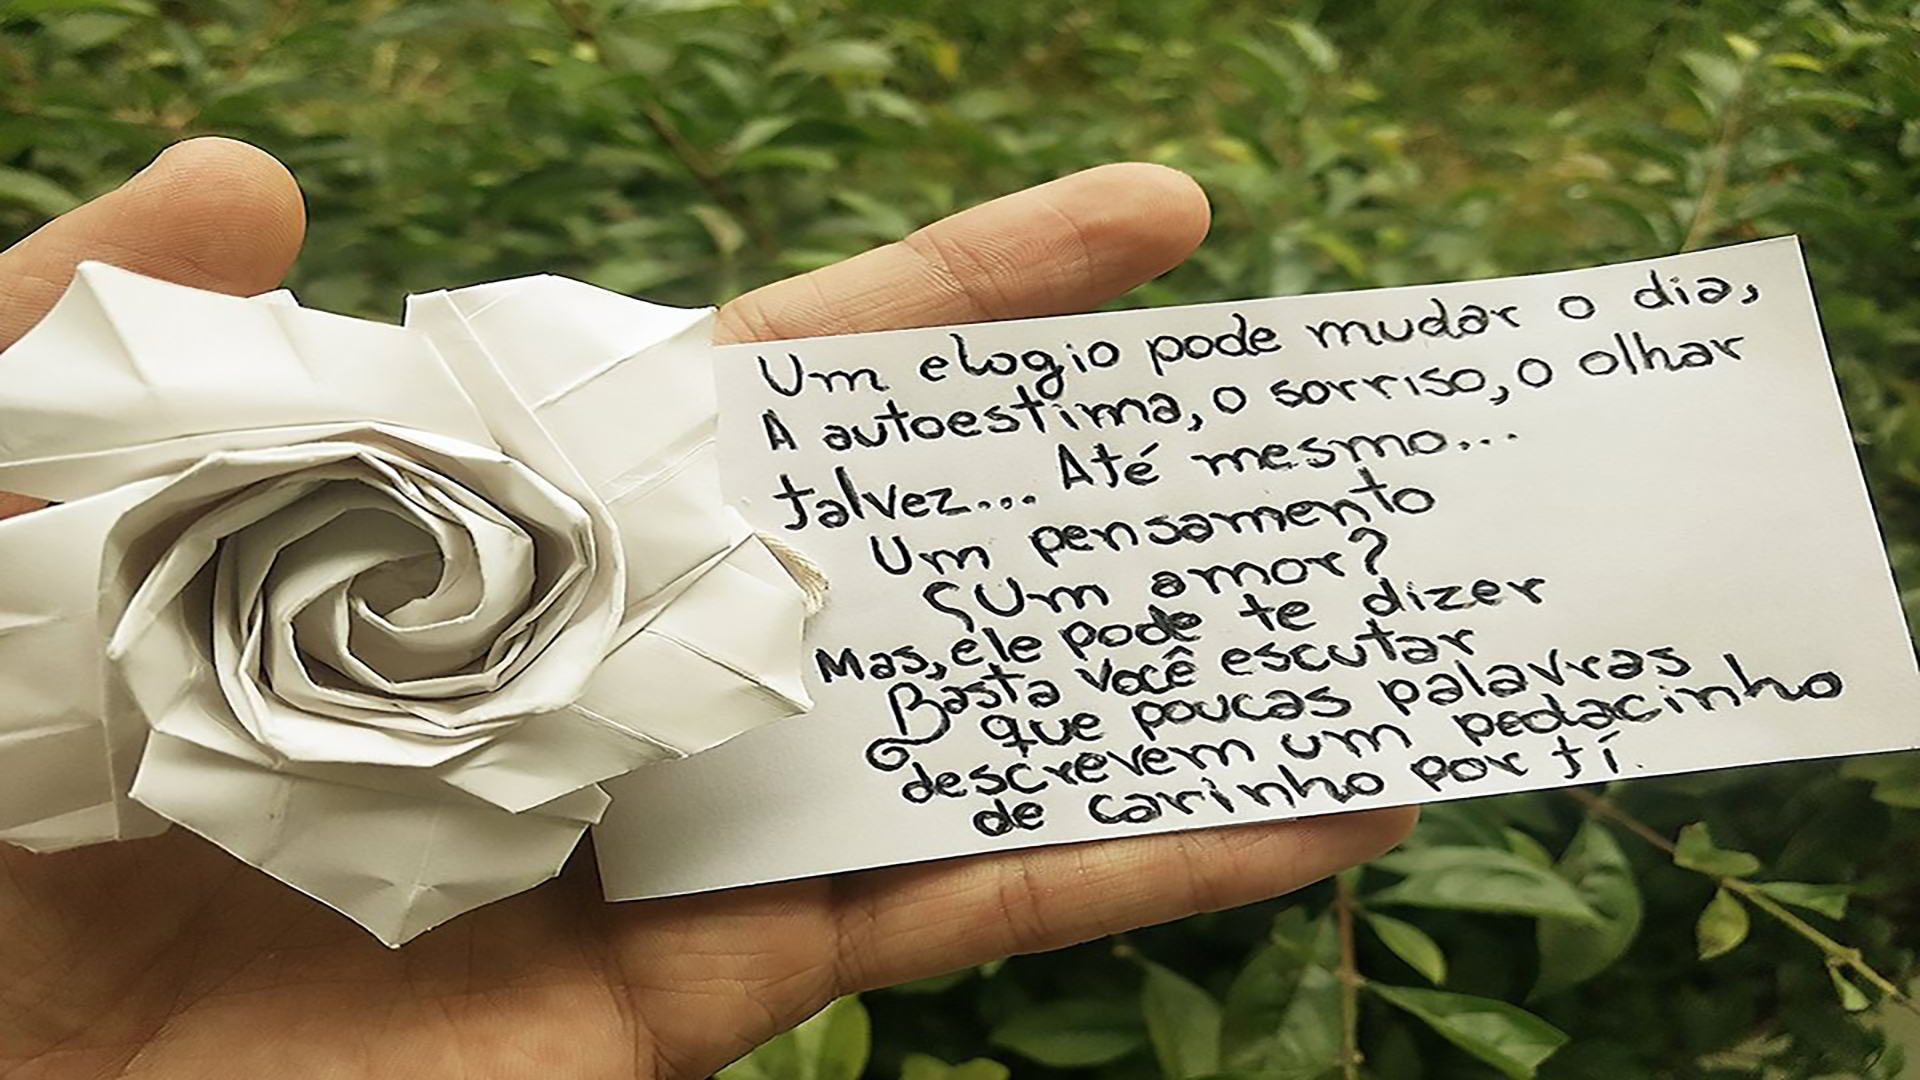 Um elogio pode mudar o dia,
A autoestima, o sorriso, o olhar
talvez... Até mesmo...
Um pensamento
Um amor?
Mas, ele pode te dizer
Basta você escutar
que poucas palavras
descrevem um pedacinho
de carinho por tí.